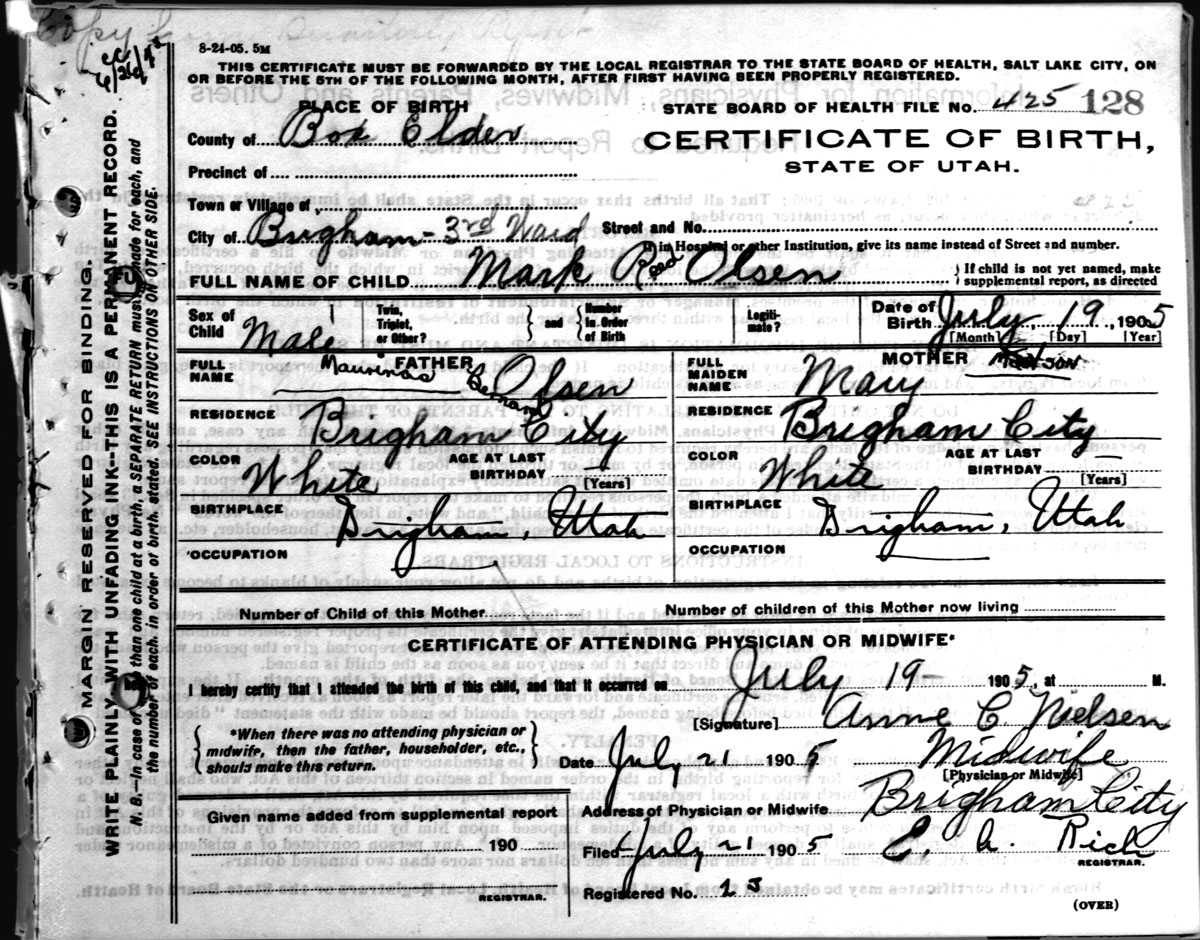 Copy from Quarterly Report
8-24-05. 5M
THIS CERTIFICATE MUST BE FORWARDED BY THE LOCAL REGISTRAR TO THE STATE BOARD OF HEALTH, SALT LAKE CITY, ON
OR BEFORE THE 5TH OF THE FOLLOWING MONTH, AFTER FIRST HAVING BEEN PROPERLY REGISTERED.
PLACE OF BIRTH
STATE BOARD OF HEALTH FILE No. 425 128
County of Box Elder
CERTIFICATE OF BIRTH,
STATE OF UTAH.
Precinct of
Town or Village of
City of Brigham - 3rd Ward Street and No.
If in Hospital or other Institution, give its name instead of Street and number.
FULL NAME OF CHILD Mark Olsen } If child is not yet named, make supplemental report, as directed
Sex of Child Male Twin, Triplet, or Other? { and } Number in Order of Birth Legitimate? Date of Birth July 19, 1905
[Month] [Day] [Year]
FATHER
FULL NAME Bernard Olsen
MOTHER
FULL MAIDEN NAME Mary
RESIDENCE Brigham City
RESIDENCE Brigham City
COLOR White AGE AT LAST BIRTHDAY [Years]
COLOR White AGE AT LAST BIRTHDAY [Years]
BIRTHPLACE Brigham, Utah
BIRTHPLACE Brigham, Utah
OCCUPATION
OCCUPATION
Number of Child of this Mother Number of children of this Mother now living
CERTIFICATE OF ATTENDING PHYSICIAN OR MIDWIFE*
I hereby certify that I attended the birth of this child, and that it occurred on July 19- 1905, at M.
[Signature] Anne C Nielsen
{ *When there was no attending physician or midwife, then the father, householder, etc., should make this return. }
Date July 21 1905 Midwife
[Physician or Midwife]
Given name added from supplemental report
190
REGISTRAR.
Address of Physician or Midwife Brigham City
Filed July 21 1905 Rich
REGISTRAR.
Registered No.
(OVER)
MARGIN RESERVED FOR BINDING.
WRITE PLAINLY WITH UNFADING INK--THIS IS A PERMANENT RECORD.
N. B.--In case of more than one child at a birth, a SEPARATE RETURN must be made for each, and
the number of each, in order of birth, stated. SEE INSTRUCTIONS ON OTHER SIDE.